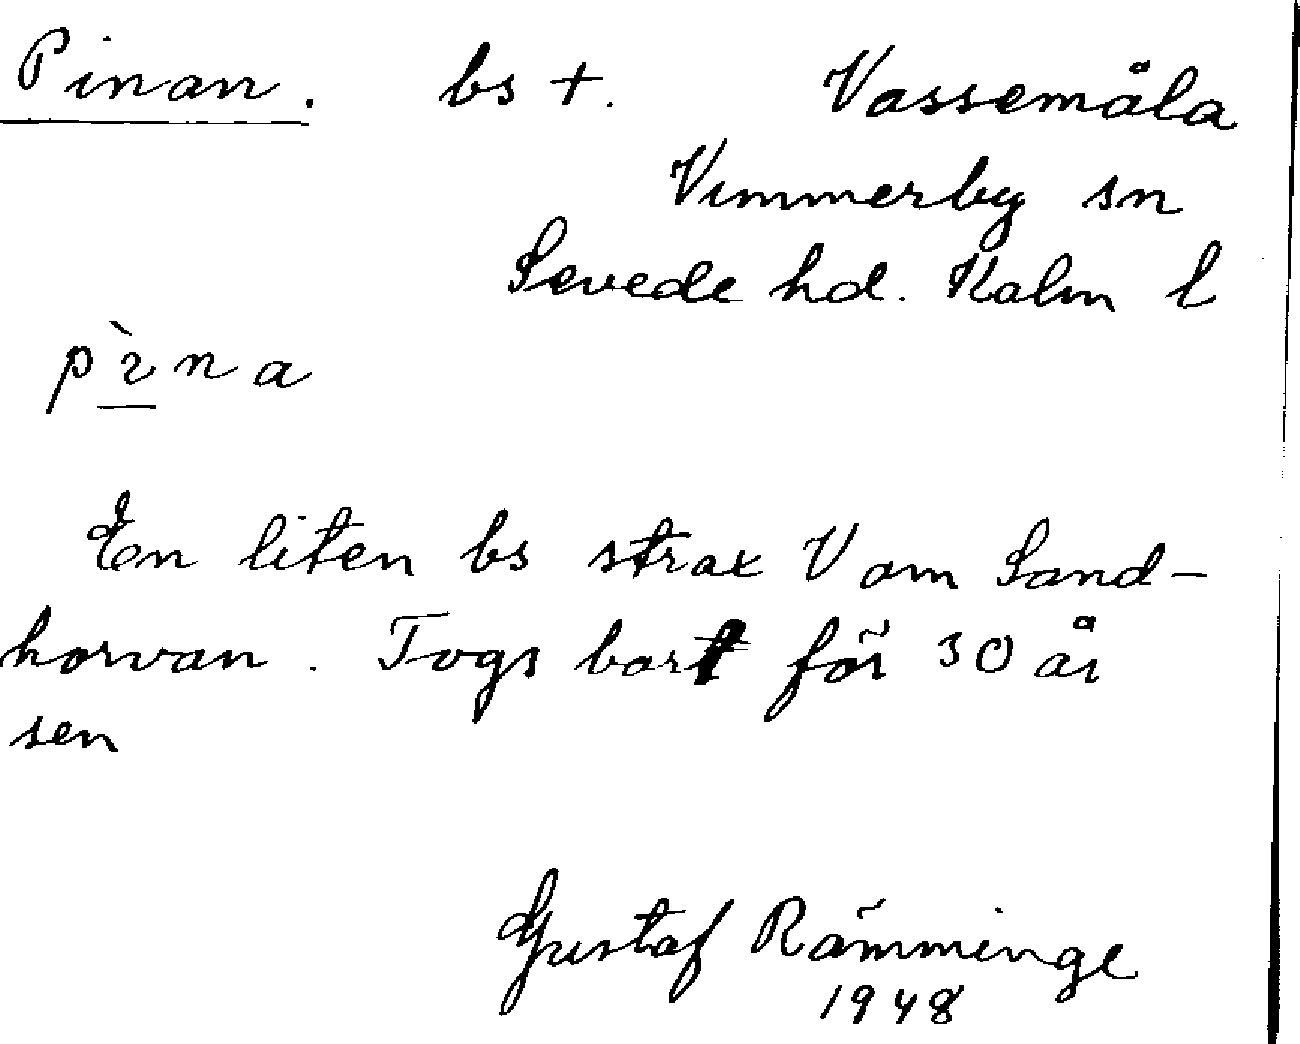 Pinan. bs +. Vassemåla
Vimmerby sn
Sevede hd. Kalm l
pı̀na
En liten bs strax V om Sand-
horvan. Togs bort för 30 år
sen
Gustaf Rämminge
1948